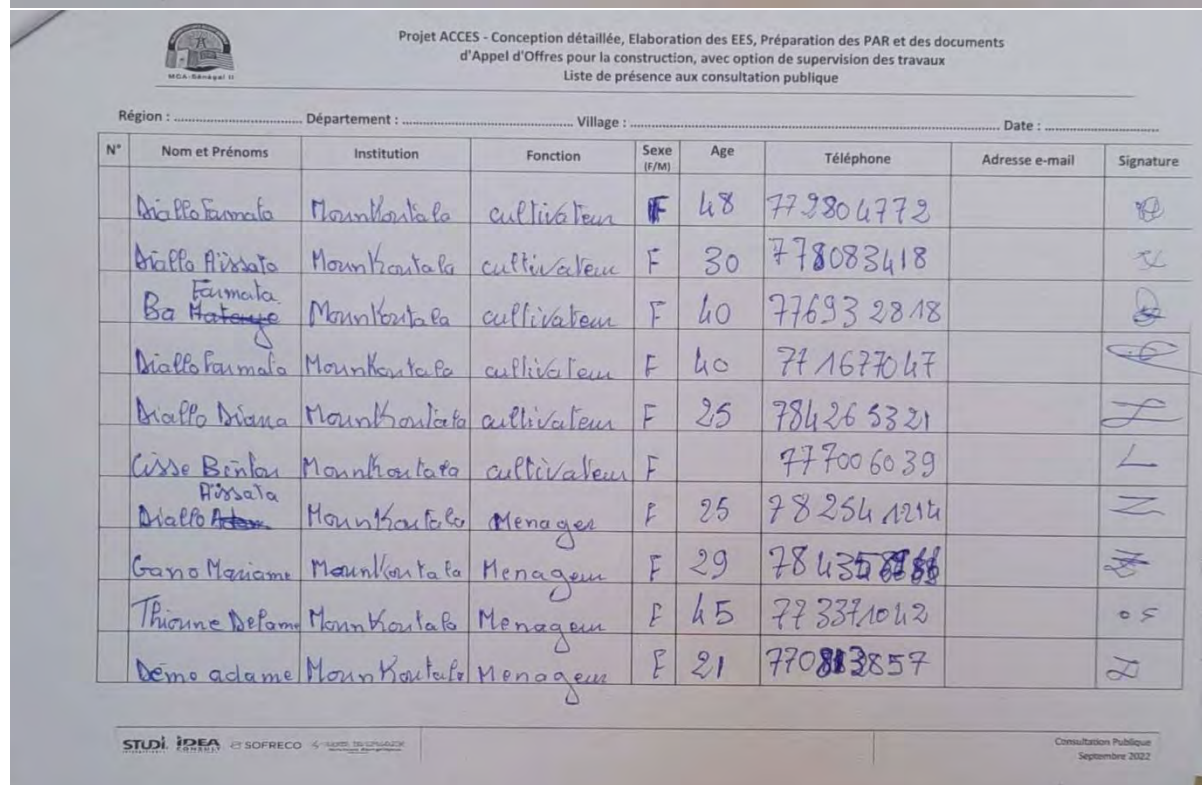 MCA-Sénégal II
Projet ACCES - Conception détaillée, Elaboration des EES, Préparation des PAR et des documents
d'Appel d'Offres pour la construction, avec option de supervision des travaux
Liste de présence aux consultation publique
Région : ................................ Département : ........................................... Village : ............................................................................................. Date : .............................
N° Nom et Prénoms Institution Fonction Sexe (F/M) Age Téléphone Adresse e-mail Signature
Diallo Farmata Mounkoutala cultivateur F 48 779804772
Diallo Aïssata Mounkoutala cultivateur F 30 778083418
Ba Farmata Mounkoutala cultivateur F 40 776932818
Diallo Farmata Mounkoutala cultivateur F 40 771677047
Diallo Diana Mounkoutala cultivateur F 25 784265321
Cisse Bintou Mounkoutala cultivateur F 777006039
Diallo Aïssata Mounkoutala Menager F 25 782541214
Gano Mariame Mounkoutala Menageur F 29
Thioune Defame Mounkoutala Menageur F 45 773371042
Demo adame Mounkoutala Menageur F 21
STUDI IDEA CONSULT SOFRECO
Consultation Publique
Septembre 2022